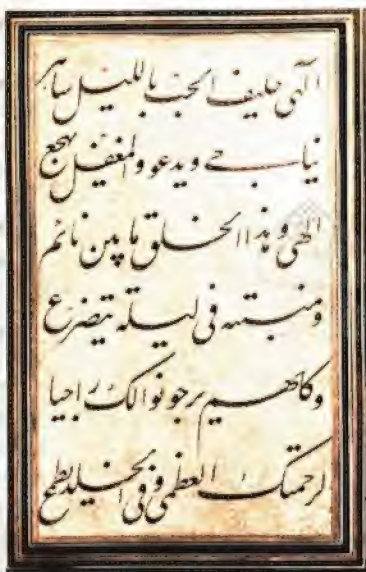 الهي حليف الحب بالليل ساهر
يناجي ويدعو والمغفل يهجع
الهي وهذا الخلق ما بين نائم
ومنتبه في ليله يتضرع
وكلهم يرجو نوالك راجيا
لرحمتك العظمى وفي الخلد يطمع